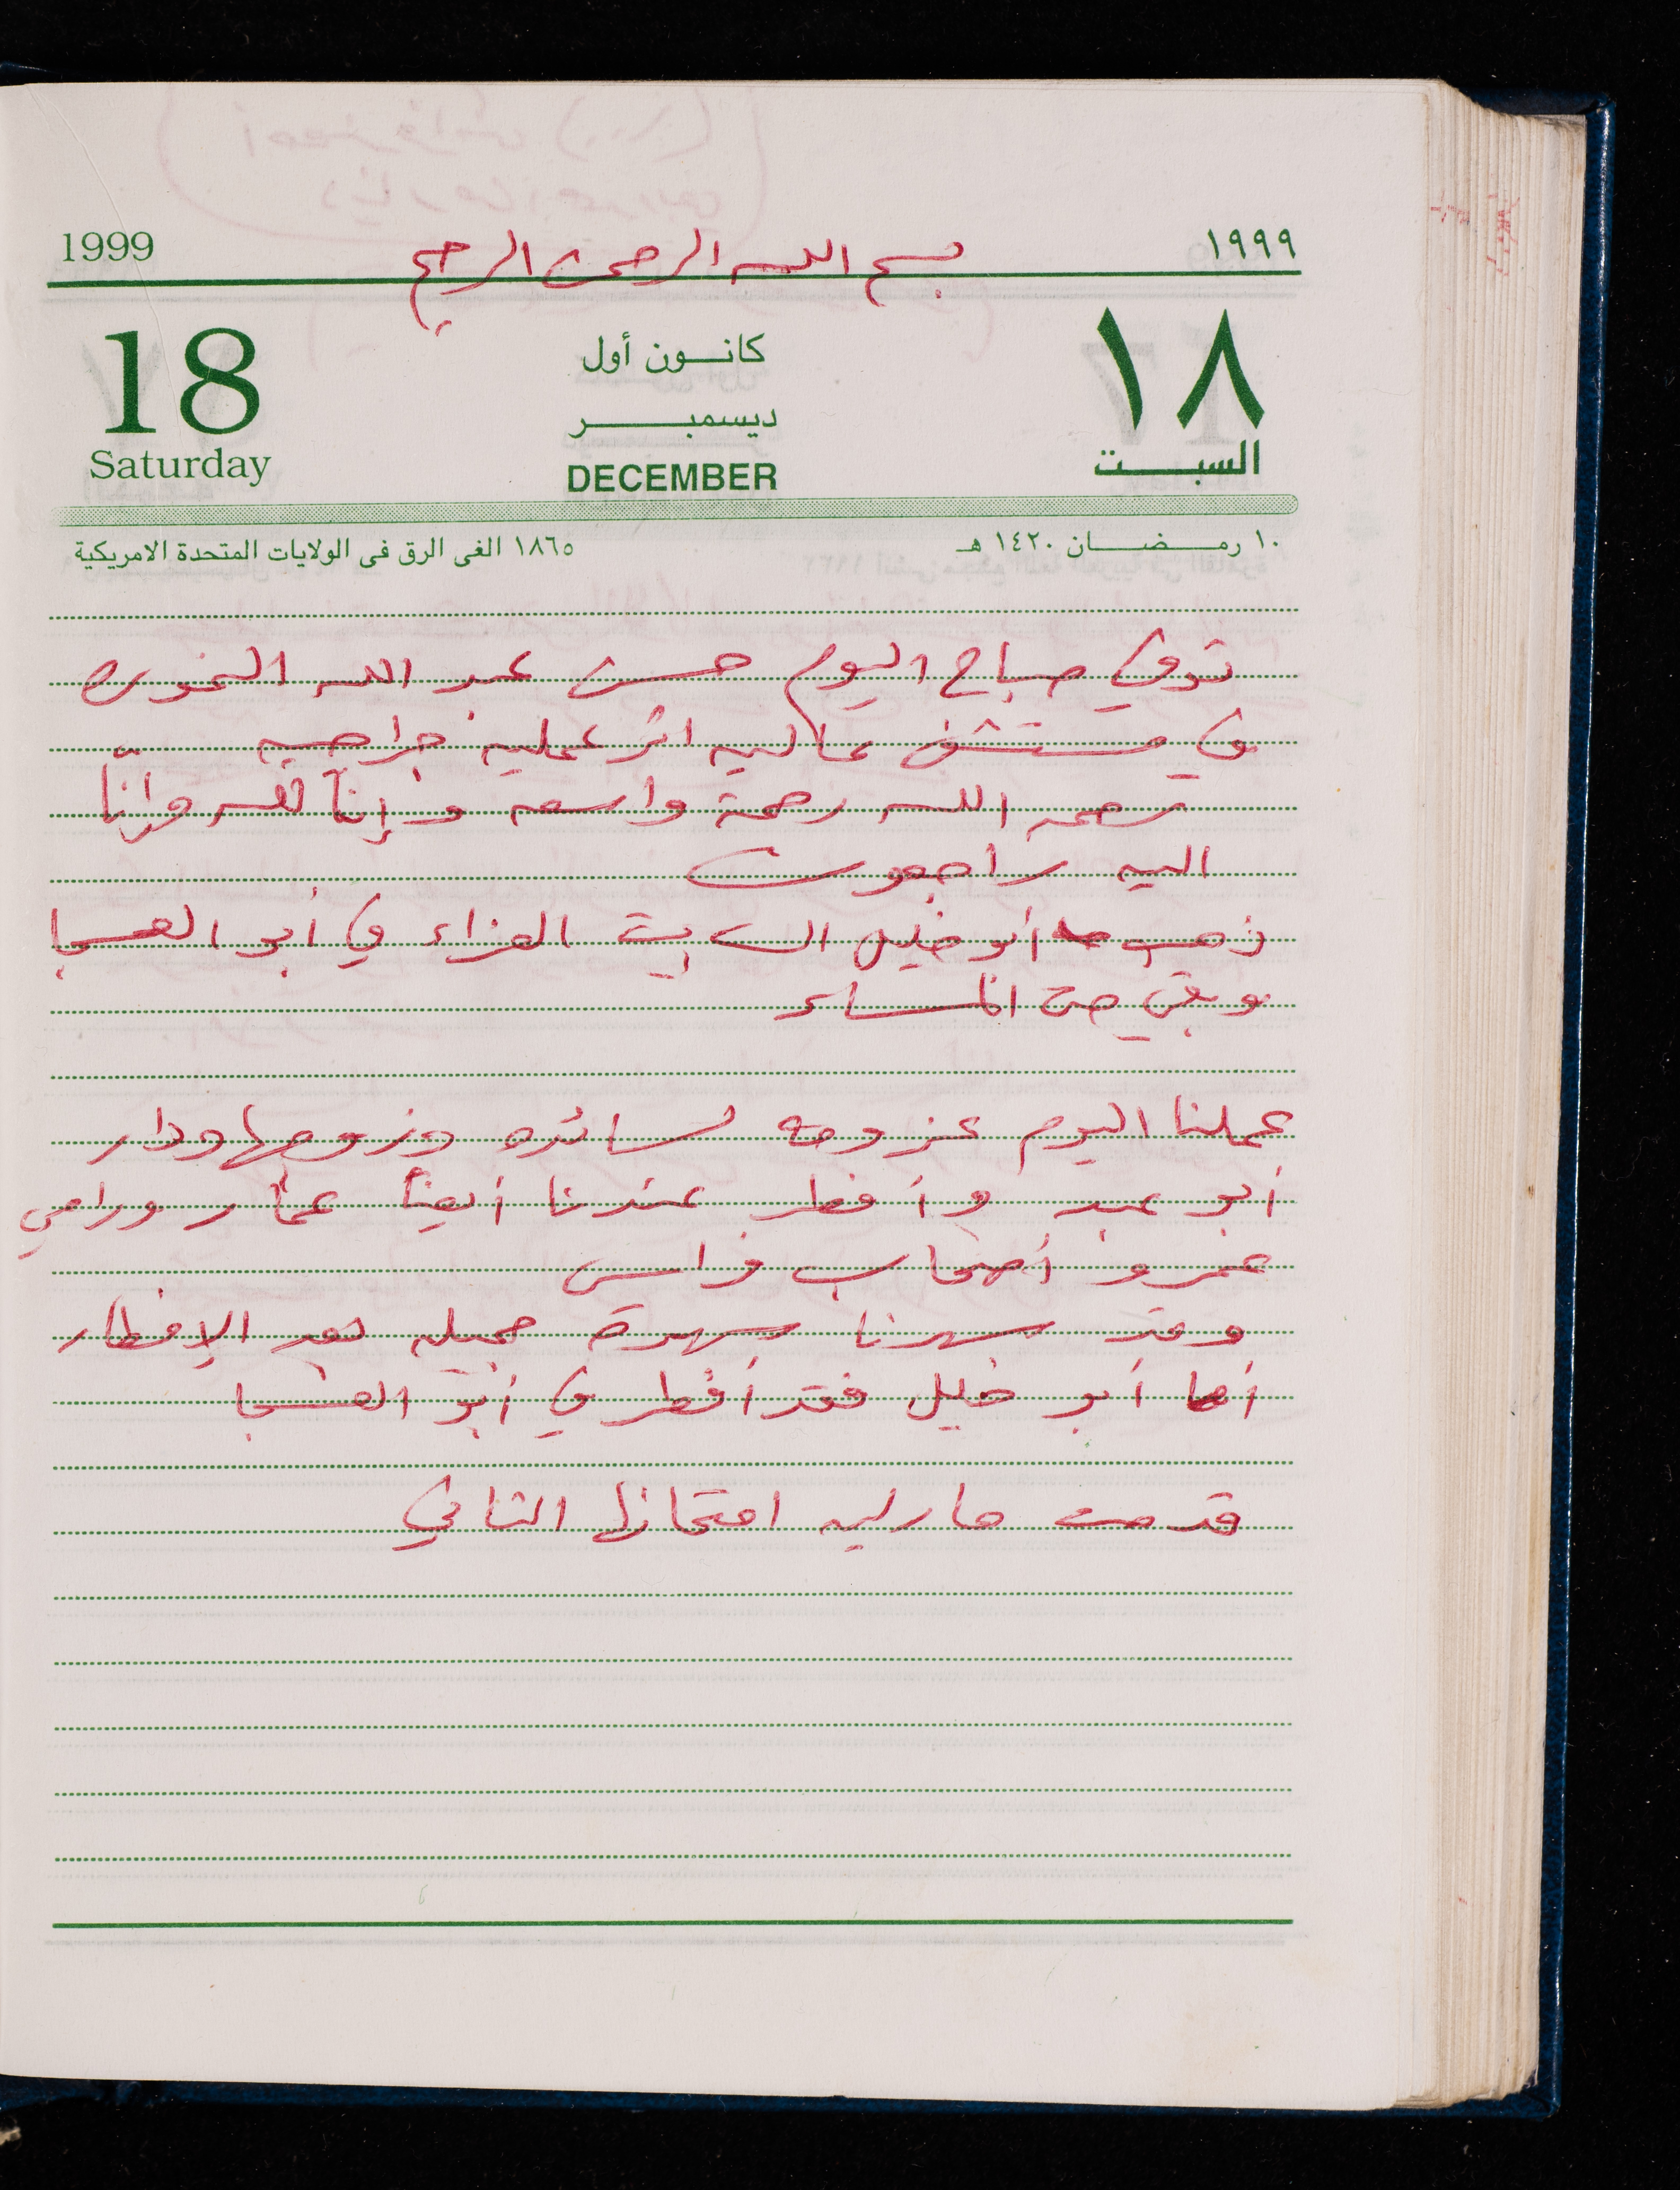 بسم الله الرحمن الرحيم
1999 ١٩٩٩
18 كانون أول ١٨
ديسمبر
Saturday DECEMBER السبت
١٠ رمضان ١٤٢٠ هـ ١٨٦٥ الغى الرق فى الولايات المتحدة الامريكية
توفي صباح اليوم حسن عبد الله
في مستشفى عاليه اثر عملية جراحيه
رحمه الله رحمة واسعه و إنا لله وإنّا
اليه راجعون
ذهب أبو خليل الى بيت العزاء في أبو العسجا
و بقي حتى المساء
عملنا اليوم عزومه لسائده وزوجها ودار
أبو عبد و أفطر عندنا أيضاً عمار ورامي
عمرو أصحاب فراس
وقد سهرنا سهرة جميله بعد الإفطار
أما أبو خليل فقد أفطر في أبو العسجا
قدمت ماريه امتحانها الثاني